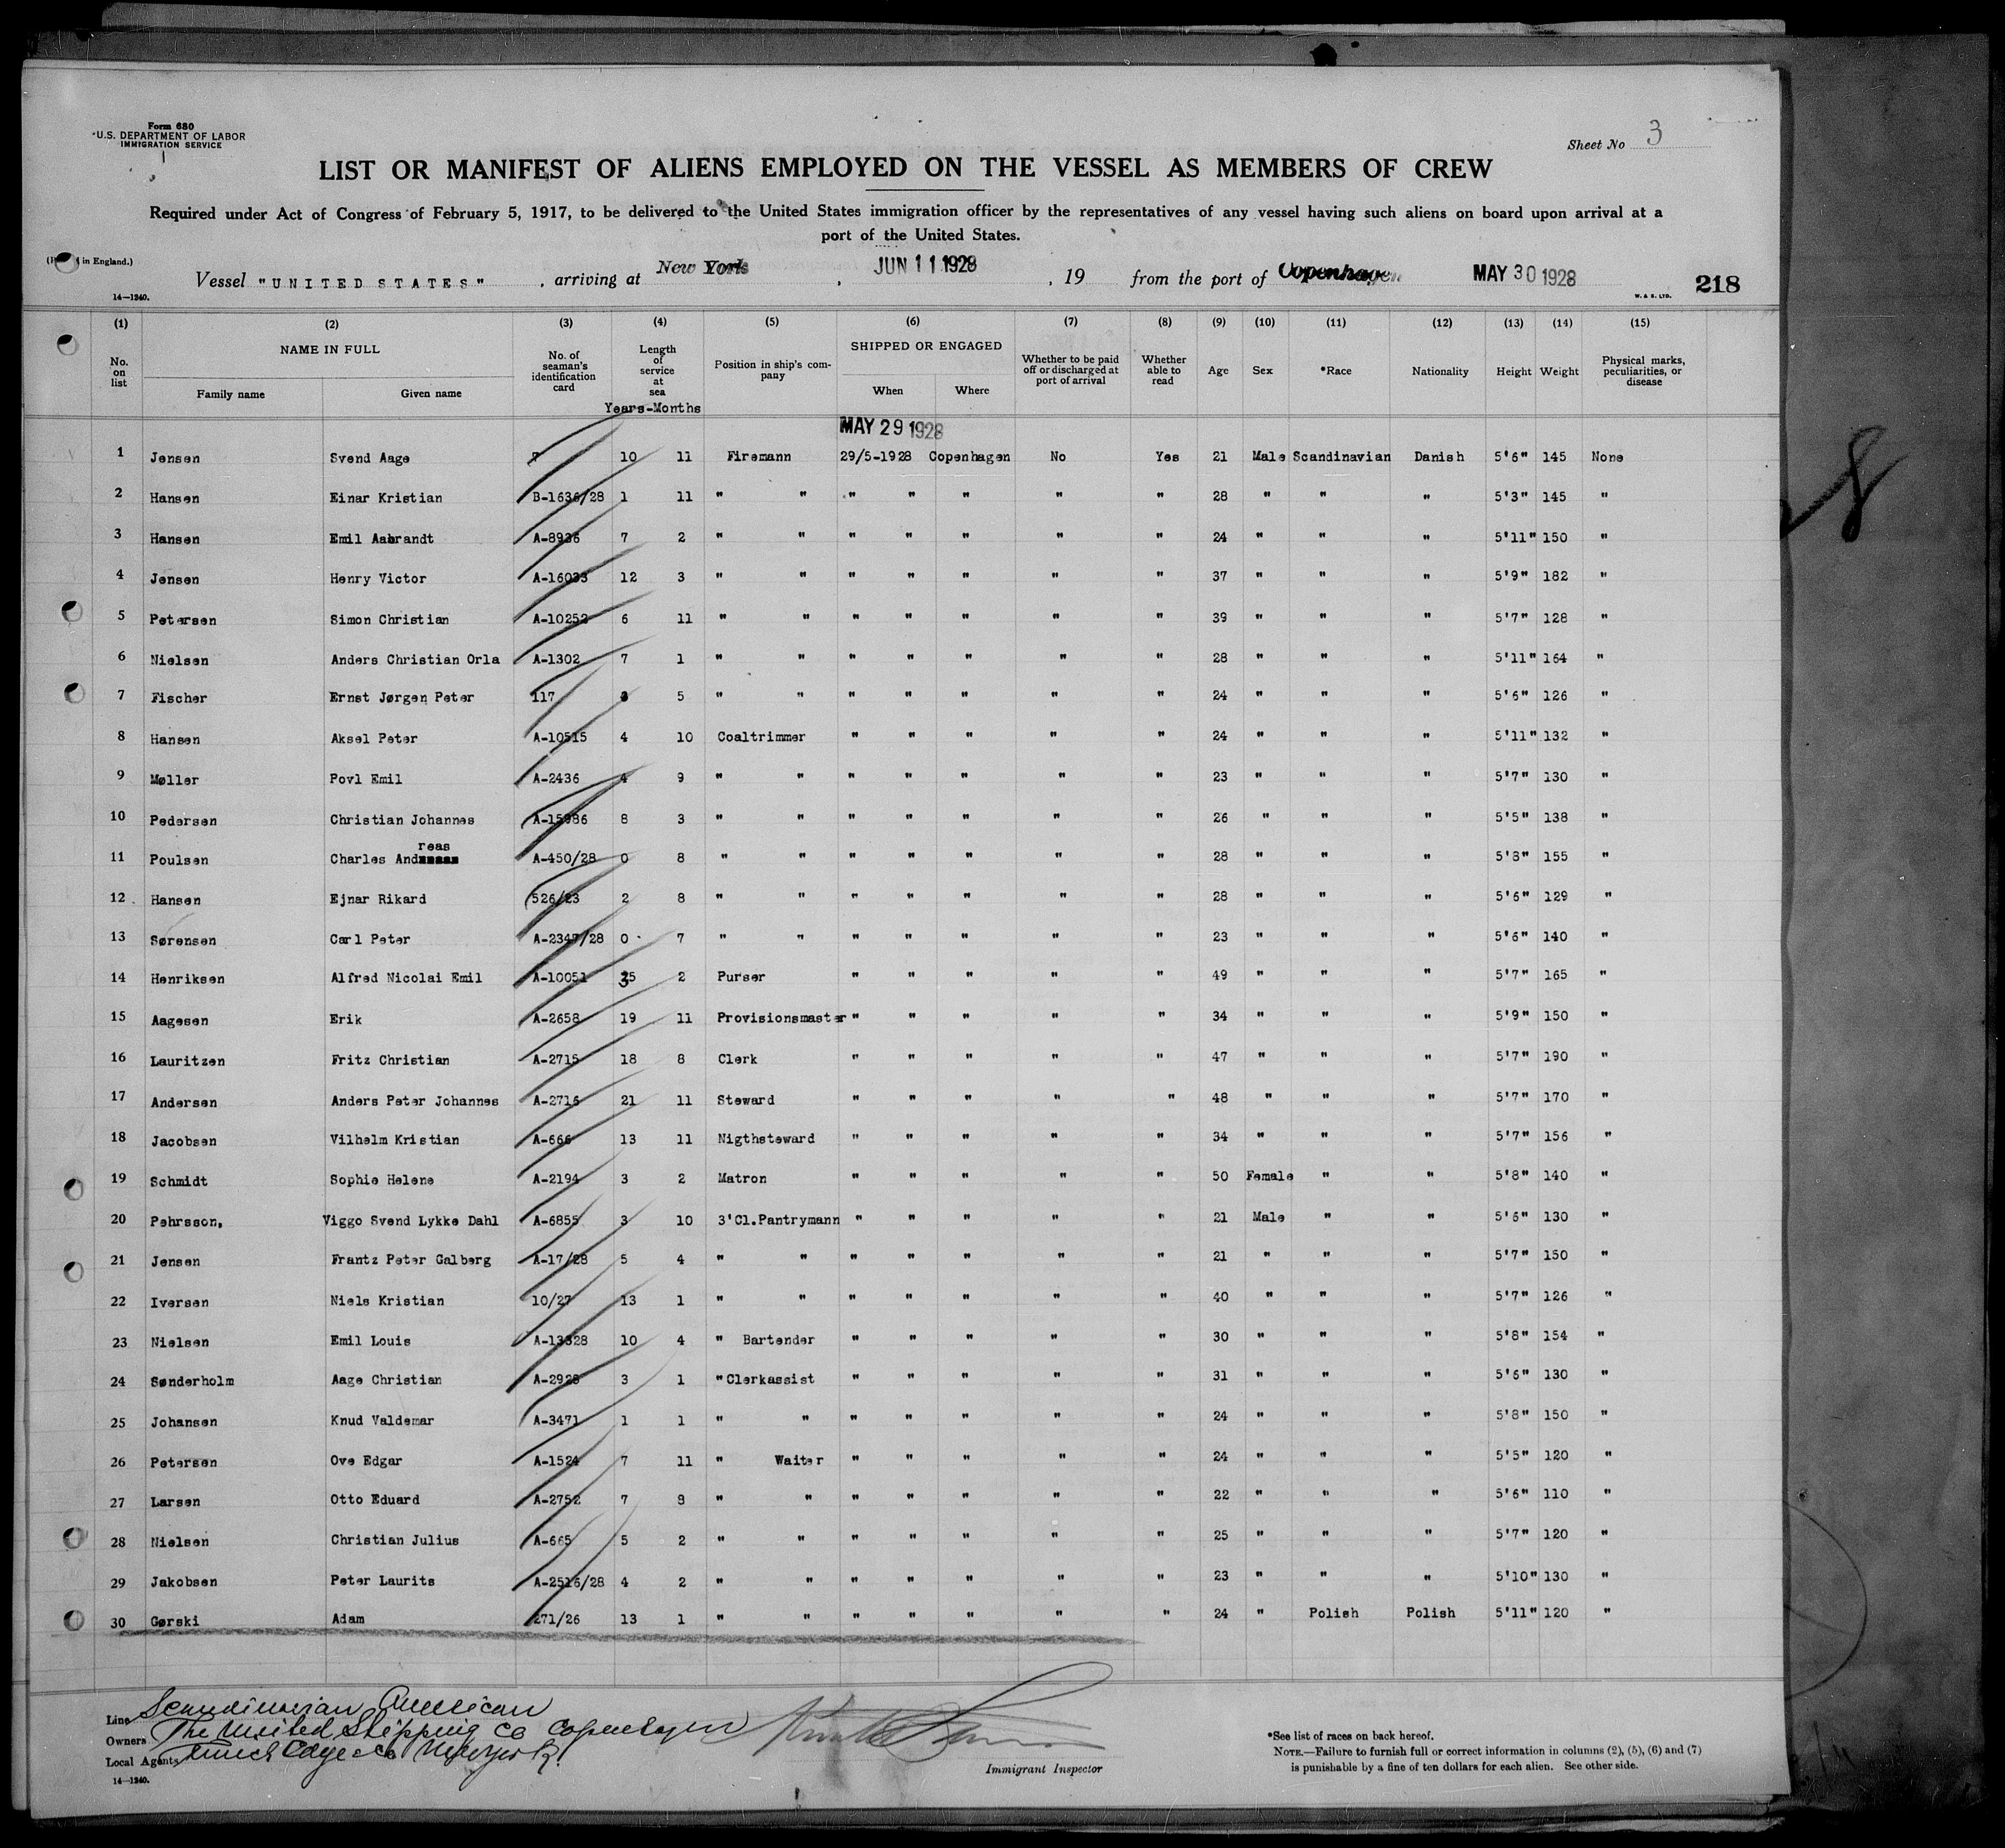 Form 680
U.S. DEPARTMENT OF LABOR
IMMIGRATION SERVICE
Sheet No 3
LIST OR MANIFEST OF ALIENS EMPLOYED ON THE VESSEL AS MEMBERS OF CREW
Required under Act of Congress of February 5, 1917, to be delivered to the United States immigration officer by the representatives of any vessel having such aliens on board upon arrival at a
port of the United States.
in England.)
Vessel "UNITED STATES" , arriving at New York , JUN 11 1928 , 19 from the port of Copenhagen MAY 30 1928 218
14—1240. W. & S. LTD.
(1) (2) (3) (4) (5) (6) (7) (8) (9) (10) (11) (12) (13) (14) (15)
No. on list NAME IN FULL Family name Given name No. of seaman's identification card Length of service at sea Years-Months Position in ship's company SHIPPED OR ENGAGED When Where Whether to be paid off or discharged at port of arrival Whether able to read Age Sex *Race Nationality Height Weight Physical marks, peculiarities, or disease
MAY 29 1928
1 Jensen Svend Aage 7 10 11 Firemann 29/5-1928 Copenhagen No Yes 21 Male Scandinavian Danish 5'6" 145 None
2 Hansen Einar Kristian B-1636/28 1 11 " " " " " " " 28 " " " 5'3" 145 "
3 Hansen Emil Aabrandt A-8936 7 2 " " " " " " " 24 " " " 5'11" 150 "
4 Jensen Henry Victor A-16033 12 3 " " " " " " " 37 " " " 5'9" 182 "
5 Petersen Simon Christian A-10252 6 11 " " " " " " " 39 " " " 5'7" 128 "
6 Nielsen Anders Christian Orla A-1302 7 1 " " " " " " " 28 " " " 5'11" 164 "
7 Fischer Ernst Jørgen Peter 117 3 5 " " " " " " " 24 " " " 5'6" 126 "
8 Hansen Aksel Peter A-10515 4 10 Coaltrimmer " " " " " 24 " " " 5'11" 132 "
9 Møller Povl Emil A-2436 4 9 " " " " " " " 23 " " " 5'7" 130 "
10 Pedersen Christian Johannes A-15986 8 3 " " " " " " " 26 " " " 5'5" 138 "
11 Poulsen Charles Andreas A-450/28 0 8 " " " " " " " 28 " " " 5'8" 155 "
12 Hansen Ejnar Rikard 526/23 2 8 " " " " " " " 28 " " " 5'6" 129 "
13 Sørensen Carl Peter A-2347/28 0 7 " " " " " " " 23 " " " 5'6" 140 "
14 Henriksen Alfred Nicolai Emil A-10051 35 2 Purser " " " " " 49 " " " 5'7" 165 "
15 Aagesen Erik A-2658 19 11 Provisionsmaster " " " " " 34 " " " 5'9" 150 "
16 Lauritzen Fritz Christian A-2715 18 8 Clerk " " " " " 47 " " " 5'7" 190 "
17 Andersen Anders Peter Johannes A-2716 21 11 Steward " " " " " 48 " " " 5'7" 170 "
18 Jacobsen Vilhelm Kristian A-666 13 11 Nigthsteward " " " " " 34 " " " 5'7" 156 "
19 Schmidt Sophie Helene A-2194 3 2 Matron " " " " " 50 Female " " 5'8" 140 "
20 Pehrsson, Viggo Svend Lykke Dahl A-6855 3 10 3'Cl.Pantrymann " " " " " 21 Male " " 5'6" 130 "
21 Jensen Frantz Peter Galberg A-17/28 5 4 " " " " " " " 21 " " " 5'7" 150 "
22 Iversen Niels Kristian 10/27 13 1 " " " " " " " 40 " " " 5'7" 126 "
23 Nielsen Emil Louis A-13328 10 4 " Bartender " " " " " 30 " " " 5'8" 154 "
24 Sønderholm Aage Christian A-2928 3 1 " Clerkassist " " " " " 31 " " " 5'6" 130 "
25 Johansen Knud Valdemar A-3471 1 1 " " " " " " " 24 " " " 5'8" 150 "
26 Petersen Ove Edgar A-1524 7 11 " Waiter " " " " " 24 " " " 5'5" 120 "
27 Larsen Otto Eduard A-2752 7 8 " " " " " " " 22 " " " 5'6" 110 "
28 Nielsen Christian Julius A-665 5 2 " " " " " " " 25 " " " 5'7" 120 "
29 Jakobsen Peter Laurits A-2516/28 4 2 " " " " " " " 23 " " " 5'10" 130 "
30 Gørski Adam 271/26 13 1 " " " " " " " 24 " Polish Polish 5'11" 120 "
Line Scandinavian American
Owners The United Shipping Co Copenhagen
Local Agents Edye & Co New York
14—1240.
Immigrant Inspector
*See list of races on back hereof.
NOTE.—Failure to furnish full or correct information in columns (2), (5), (6) and (7)
is punishable by a fine of ten dollars for each alien. See other side.